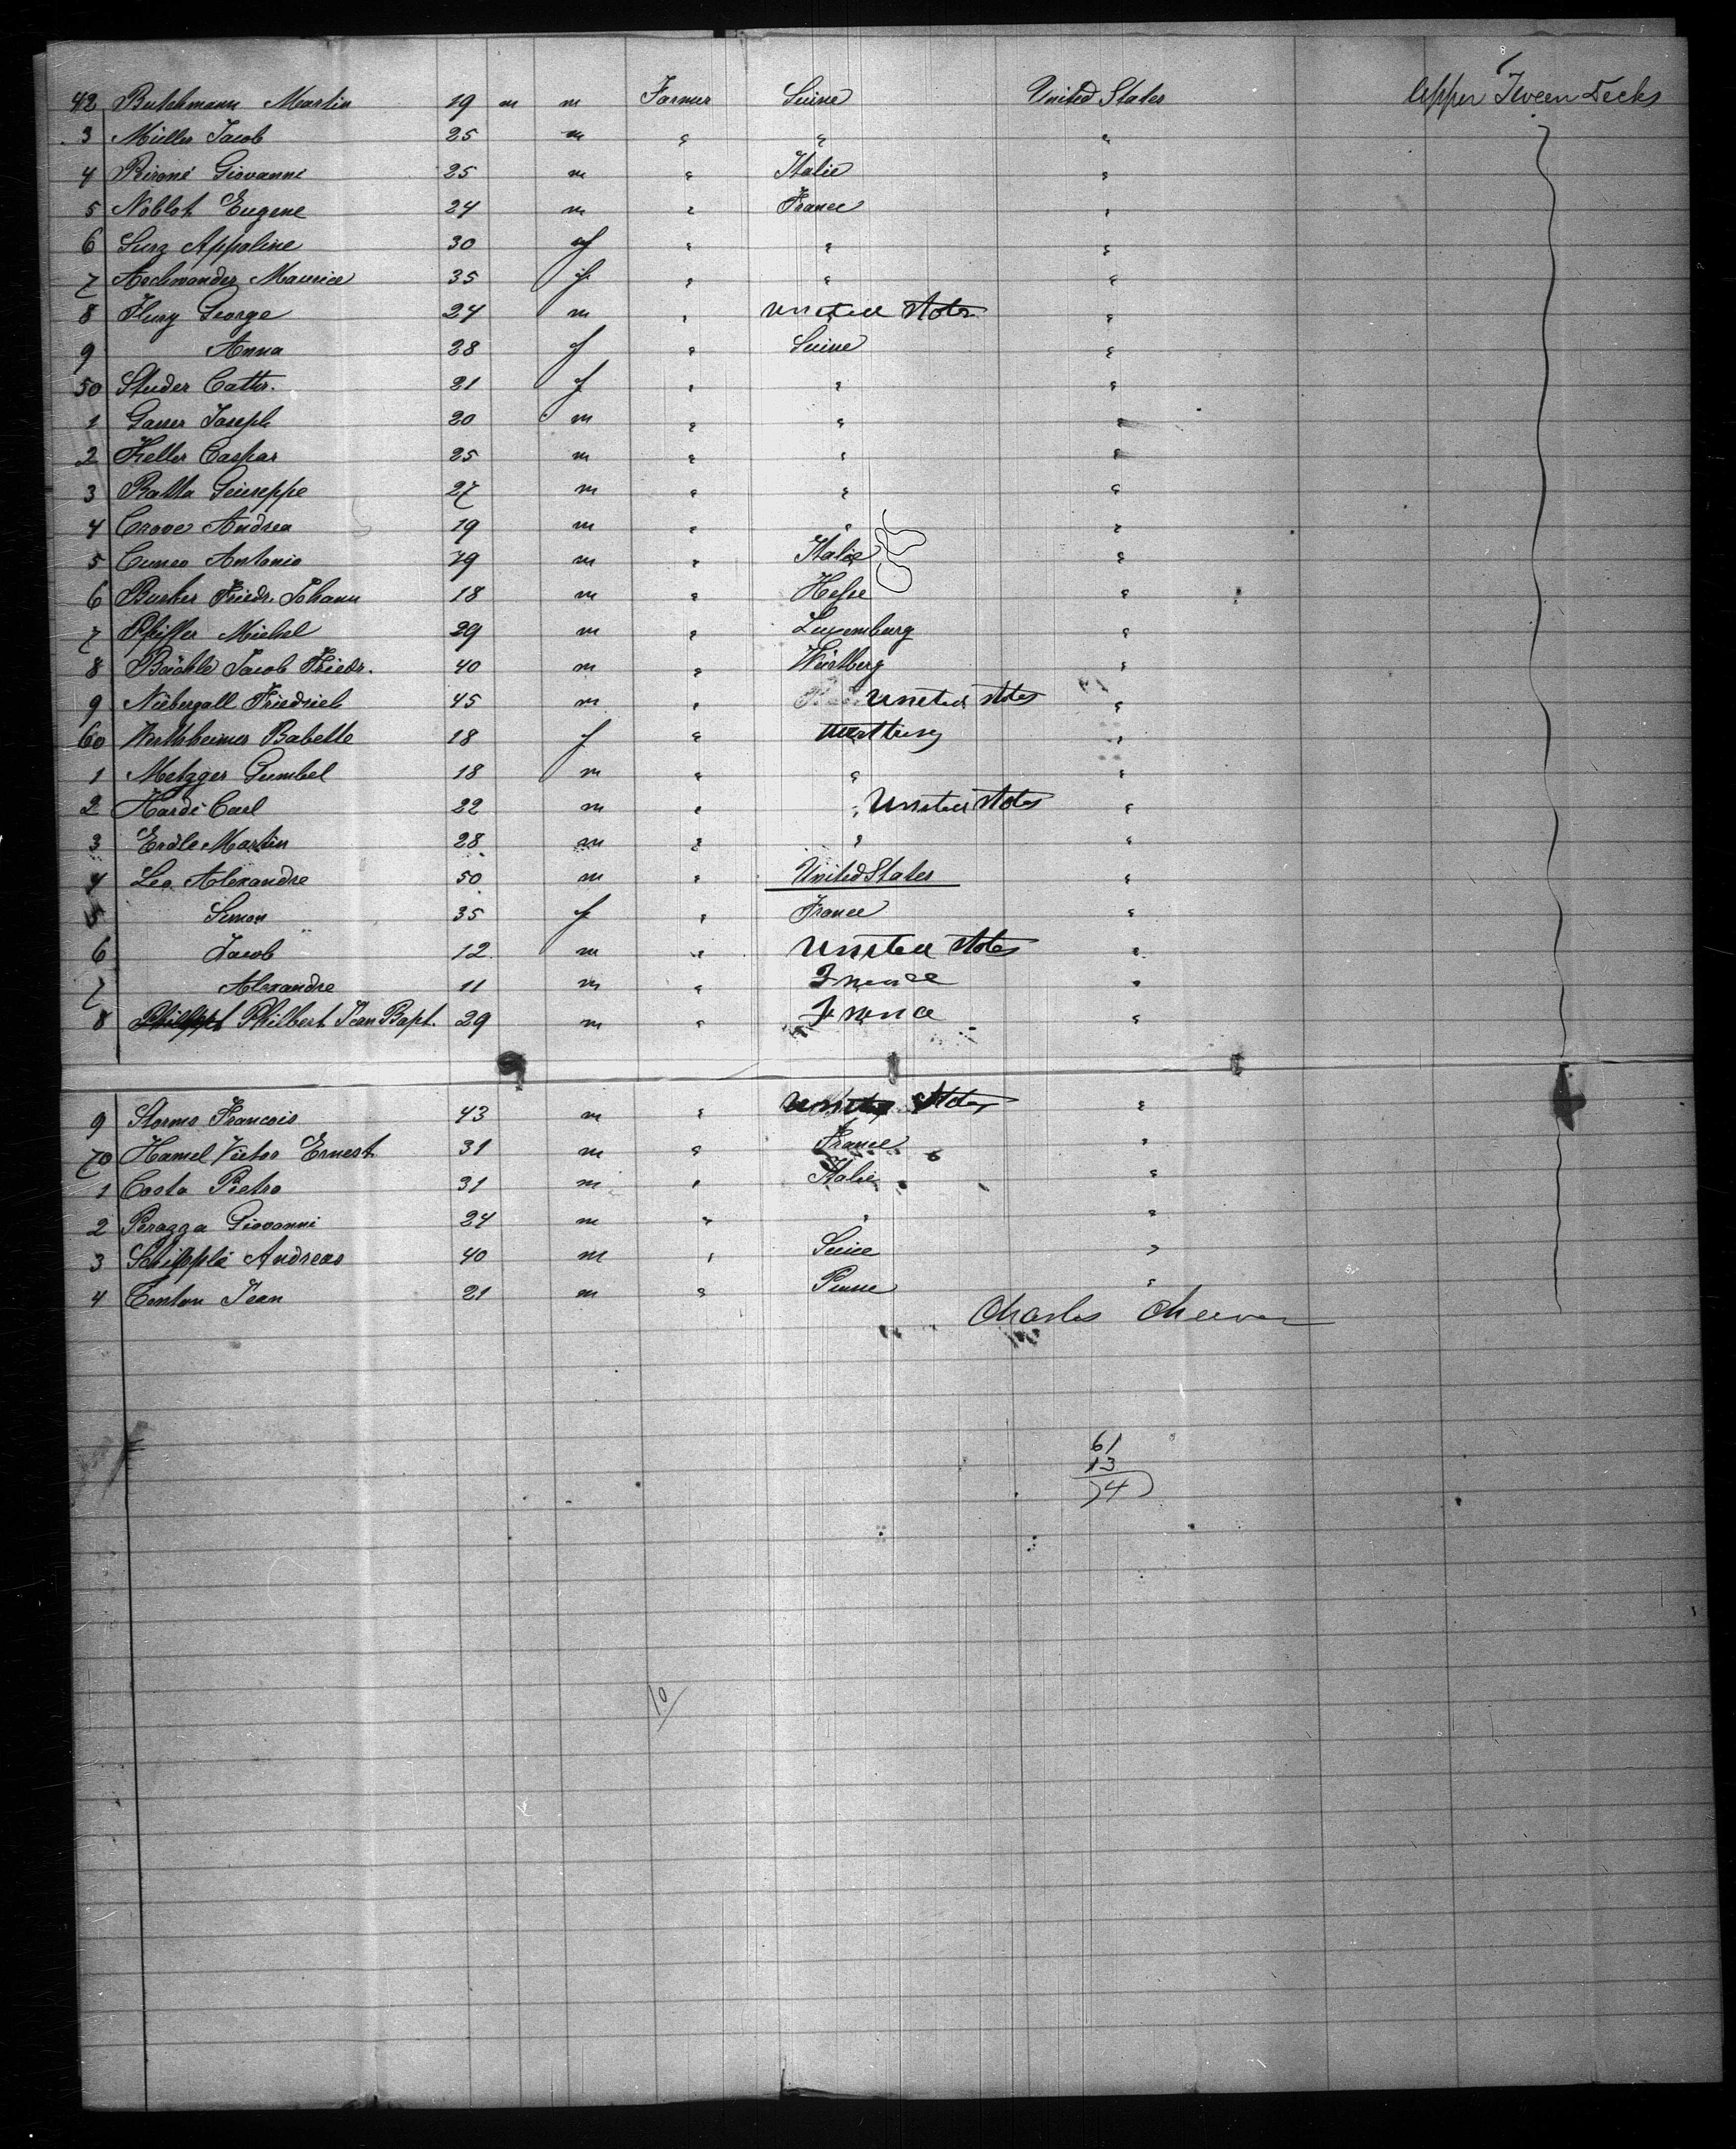 Upper Tween Decks
42 Butchmann Martin 19 m m Farmer Suisse United States
3 Müller Jacob 25 m " " "
4 Bironi Giovanni 25 m " Italie "
5 Noblot Eugene 24 m " France "
6 Surg Appoline 30 f " " "
7 Aschwander Maurice 35 f " " "
8 Flury George 24 m " United States "
9 Anna 28 f " Suisse "
50 Studer Cathr. 21 f " " "
1 Gasser Joseph 20 m " " "
2 Keller Caspar 25 m " " "
3 Batta Geiuseppe 27 m " " "
4 Crove Andrea 19 m " " "
5 Cuneo Antonio 19 m " Italie "
6 Burker Friedr. Johann 18 m " Hesse "
7 Pfeiffer Michel 29 m " Luxemburg "
8 Bächle Jacob Friedr. 40 m " Würtberg "
9 Niebergall Friedrich 45 m " United States "
60 Wertheimer Babette 18 f " Wurttberg "
1 Metzger Gumbel 18 m " " "
2 Hardi Carl 22 m " " United States "
3 Erdle Martin 28 m " " "
4 Leo Alexandre 50 m " United States "
5 Simon 35 f " France "
6 Jacob 12 m " United States "
7 Alexandre 11 m " France "
8 Philbert Jean Bapt. 29 m " France "
9 Stormo Francois 43 m " United States "
70 Hamel Victor Ernest 31 m " France "
1 Costa Pietro 31 m " Italie "
2 Peragga Giovanni 24 m " " "
3 Schippli Andreas 40 m " Suisse "
4 Conton Jean 21 m " "
Charles
61
13
74
10